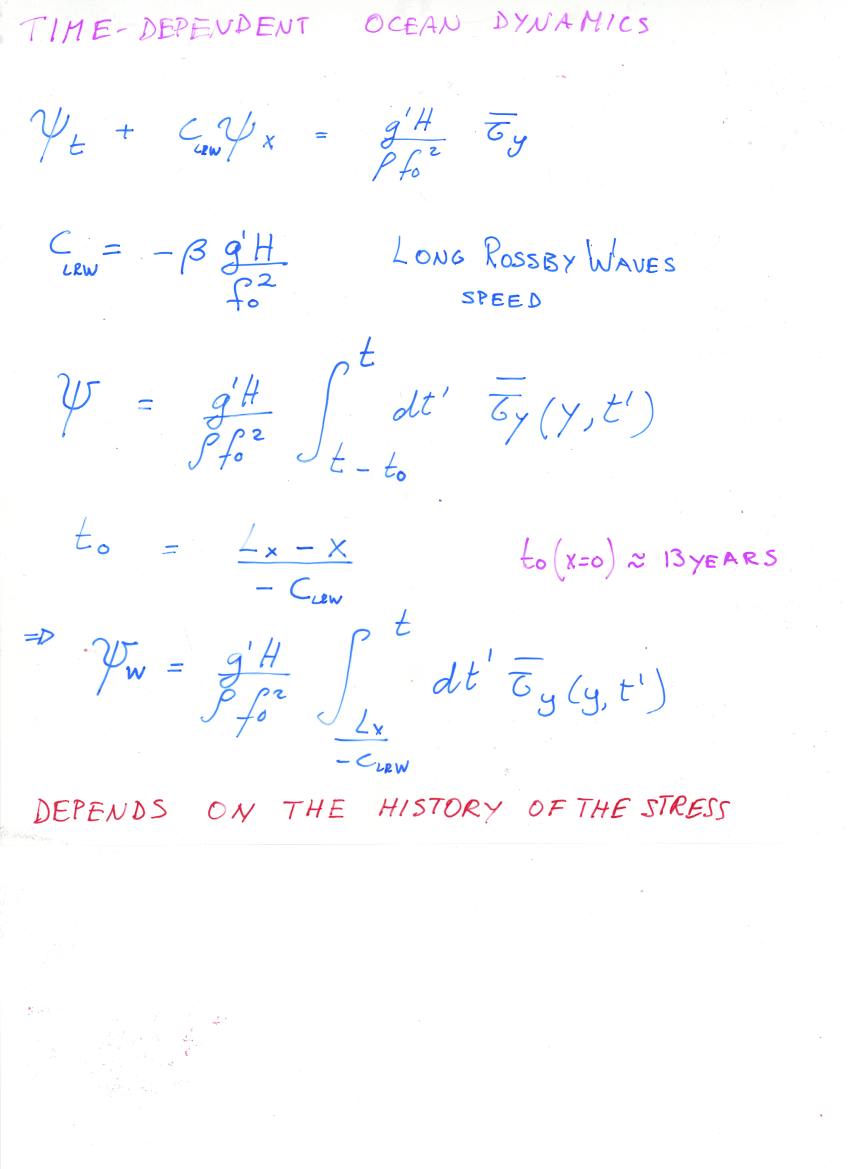 TIME-DEPENDENT OCEAN DYNAMICS
ψ_t + C_LRW ψ_x = g'H / ρf₀² τ̄_y
C_LRW = -β g'H / f₀² LONG ROSSBY WAVES
SPEED
ψ = g'H / ρf₀² ∫_{t-t₀}^{t} dt' τ̄_y (y, t')
t₀ = L_x - x / -C_LRW t₀(x=0) ≈ 13 YEARS
⇒ ψ_W = g'H / ρf₀² ∫_{L_x / -C_LRW}^{t} dt' τ̄_y (y, t')
DEPENDS ON THE HISTORY OF THE STRESS